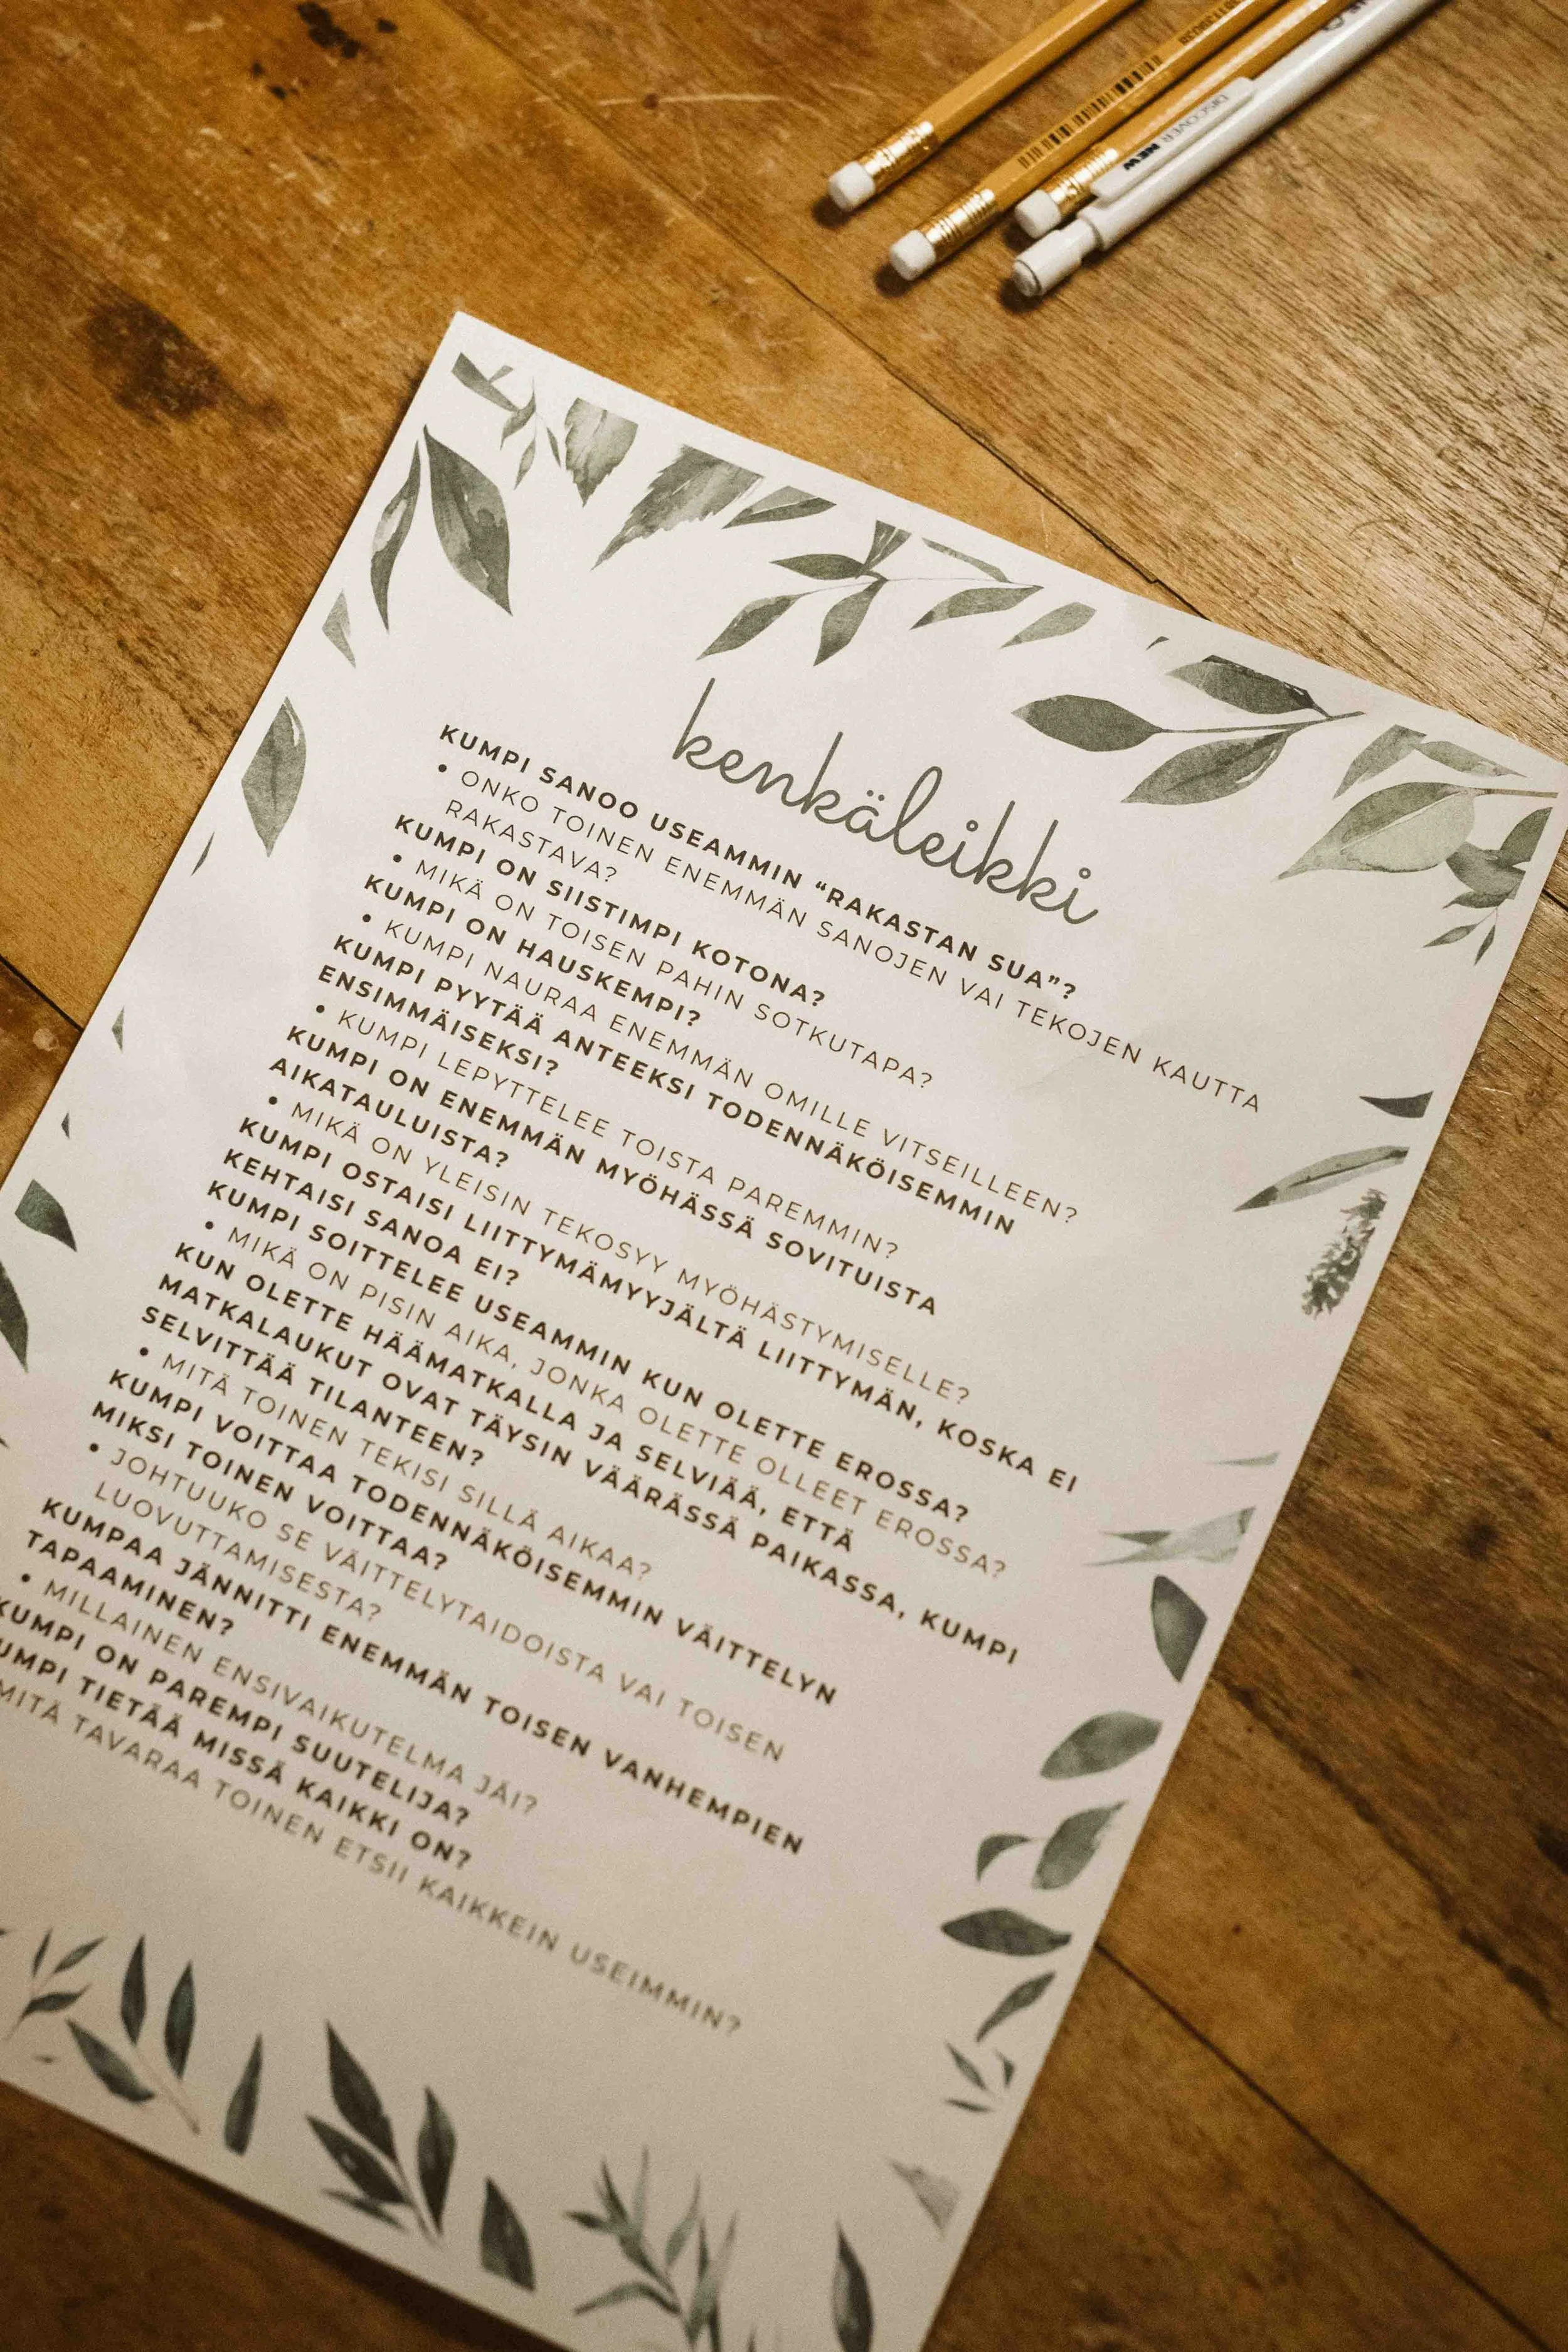 DISCOVER NEW
kenkäleikki
KUMPI SANOO USEAMMIN “RAKASTAN SUA”?
• ONKO TOINEN ENEMMÄN SANOJEN VAI TEKOJEN KAUTTA
RAKASTAVA?
KUMPI ON SIISTIMPI KOTONA?
• MIKÄ ON TOISEN PAHIN SOTKUTAPA?
KUMPI ON HAUSKEMPI?
• KUMPI NAURAA ENEMMÄN OMILLE VITSEILLEEN?
KUMPI PYYTÄÄ ANTEEKSI TODENNÄKÖISEMMIN
ENSIMMÄISEKSI?
• KUMPI LEPYTTELEE TOISTA PAREMMIN?
KUMPI ON ENEMMÄN MYÖHÄSSÄ SOVITUISTA
AIKATAULUISTA?
• MIKÄ ON YLEISIN TEKOSYY MYÖHÄSTYMISELLE?
KUMPI OSTAISI LIITTYMÄMYYJÄLTÄ LIITTYMÄN, KOSKA EI
KEHTAISI SANOA EI?
KUMPI SOITTELEE USEAMMIN KUN OLETTE EROSSA?
• MIKÄ ON PISIN AIKA, JONKA OLETTE OLLEET EROSSA?
KUN OLETTE HÄÄMATKALLA JA SELVIÄÄ, ETTÄ
MATKALAUKUT OVAT TÄYSIN VÄÄRÄSSÄ PAIKASSA, KUMPI
SELVITTÄÄ TILANTEEN?
• MITÄ TOINEN TEKISI SILLÄ AIKAA?
KUMPI VOITTAA TODENNÄKÖISEMMIN VÄITTELYN
MIKSI TOINEN VOITTAA?
• JOHTUUKO SE VÄITTELYTAIDOISTA VAI TOISEN
LUOVUTTAMISESTA?
KUMPAA JÄNNITTI ENEMMÄN TOISEN VANHEMPIEN
TAPAAMINEN?
• MILLAINEN ENSIVAIKUTELMA JÄI?
KUMPI ON PAREMPI SUUTELIJA?
UMPI TIETÄÄ MISSÄ KAIKKI ON?
MITÄ TAVARAA TOINEN ETSII KAIKKEIN USEIMMIN?